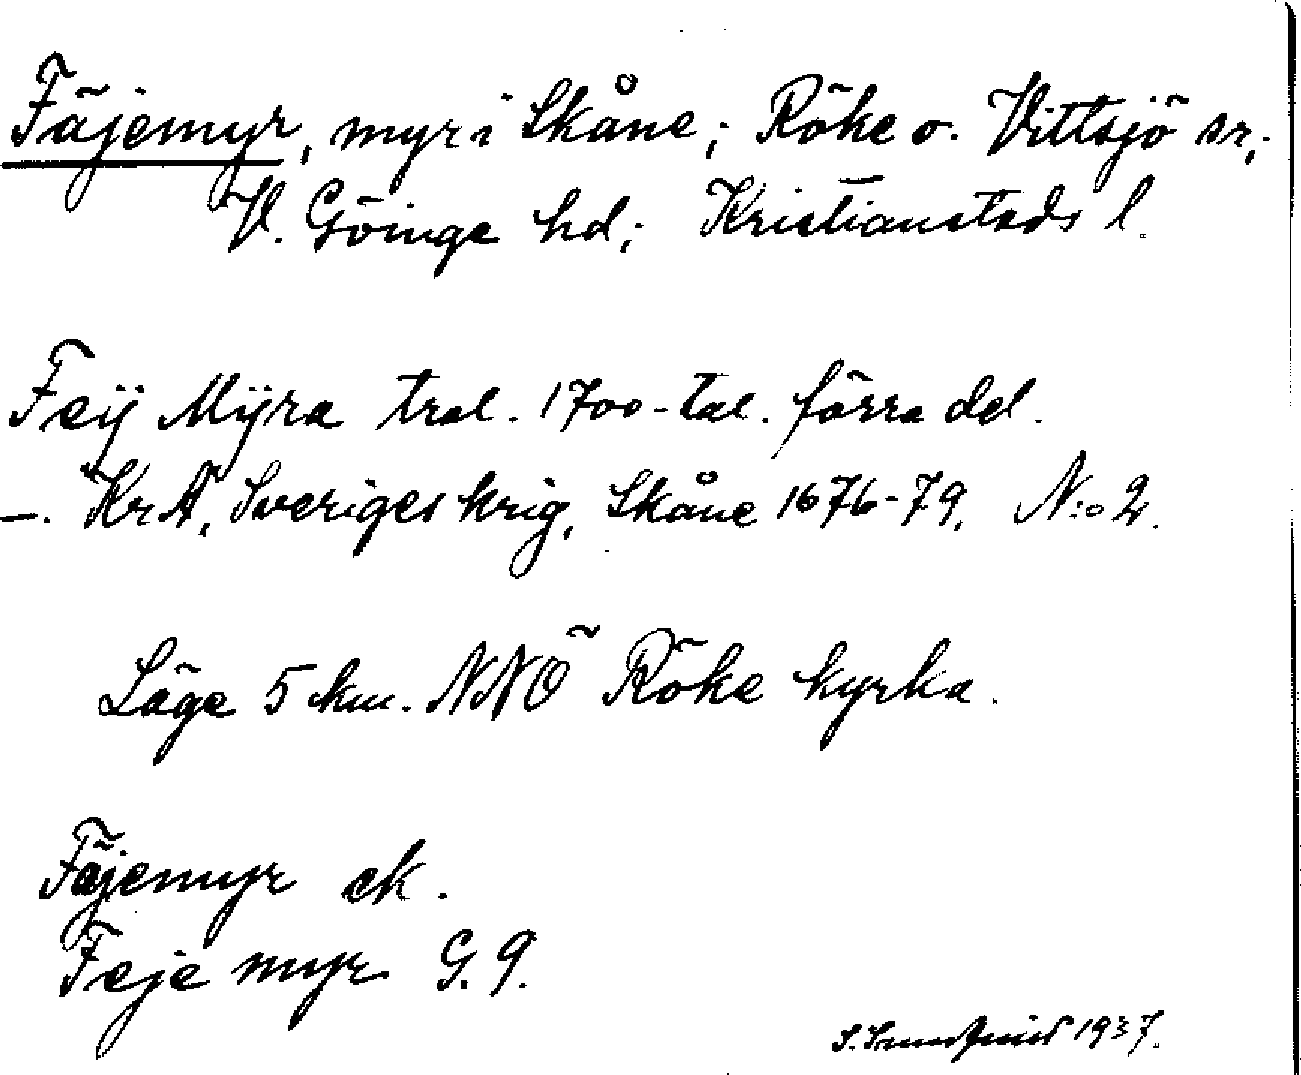 Fäjemyr, myr i Skåne; Röke o. Vittsjö sr;
V. Göinge hd; Kristianstads l.
Feÿ Mÿra trol. 1700-tal. förra del.
—. KrA, Sveriges krig, Skåne 1676-79. N:o 2.
Läge 5 km. NNÖ Röke kyrka.
Fäjemyr ek.
Feje myr G. 9.
1937.